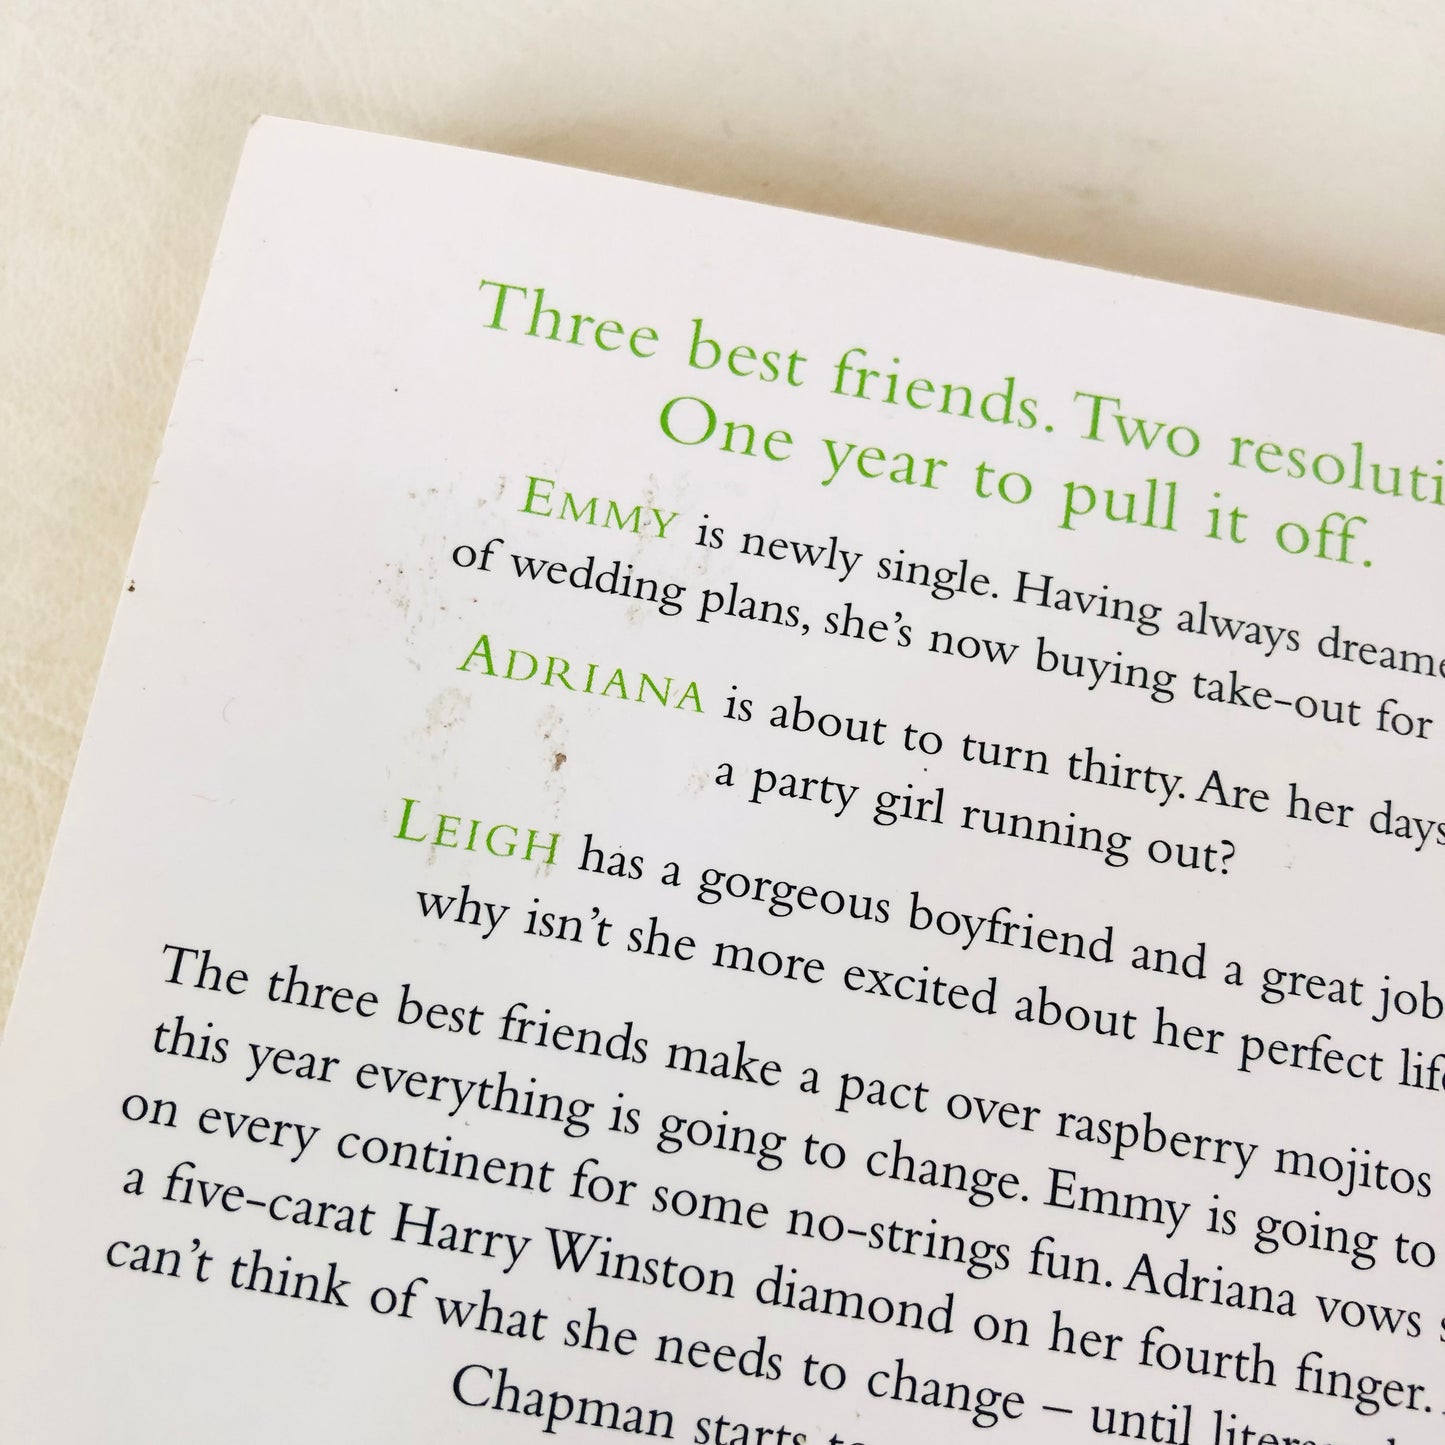 Three best friends. Two
One year to pull it off.
EMMY is newly single. Having always
of wedding plans, she's now buying take-out for
ADRIANA is about to turn thirty. Are her days
a party girl running out?
LEIGH has a gorgeous boyfriend and a great job
why isn't she more excited about her perfect
The three best friends make a pact over raspberry mojitos
this year everything is going to change. Emmy is going to
on every continent for some no-strings fun. Adriana vows
a five-carat Harry Winston diamond on her fourth finger.
can't think of what she needs to change – until
Chapman starts